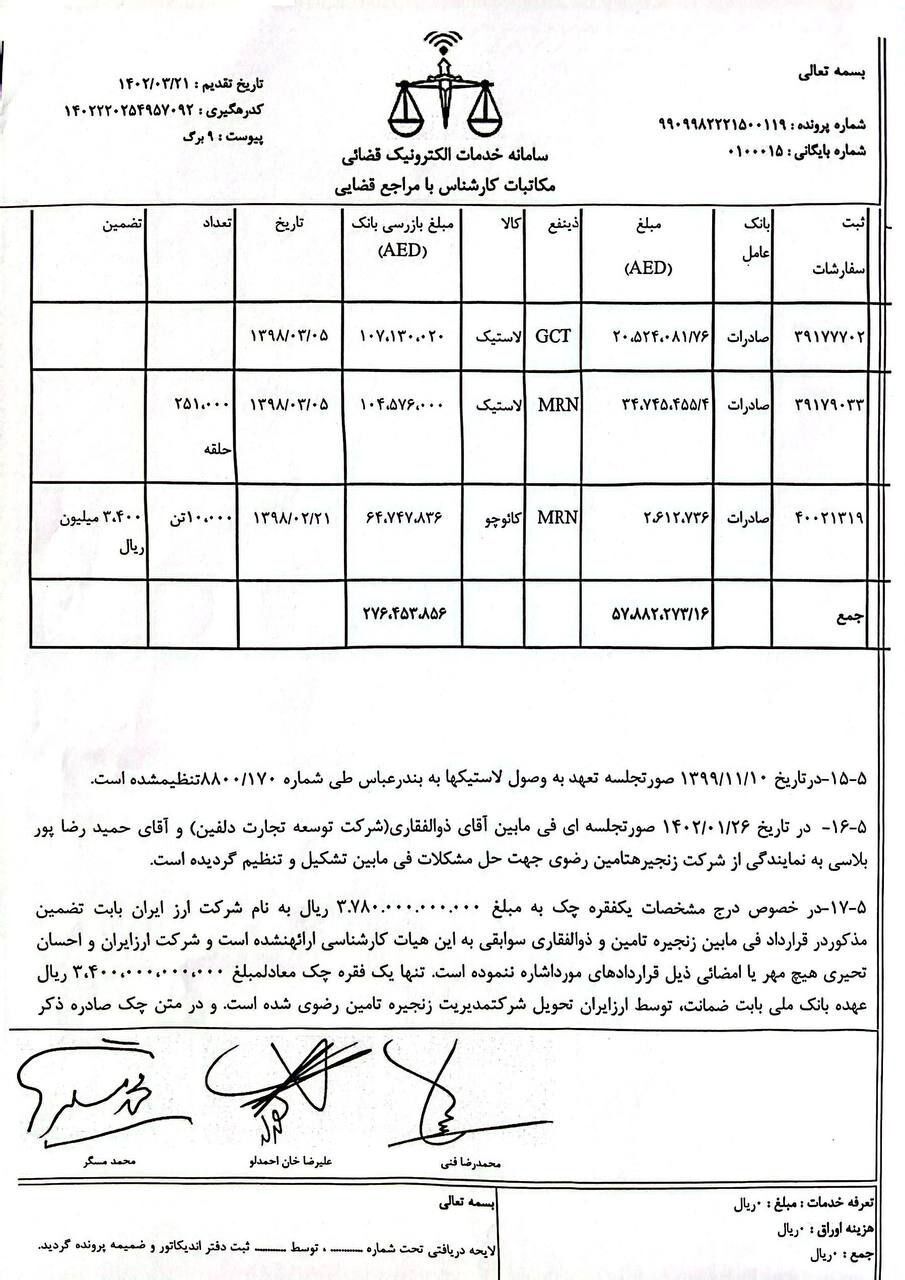 بسمه تعالی
شماره پرونده : ۹۹۰۹۹۸۲۲۲۱۵۰۰۱۱۹
شماره بایگانی : ۰۱۰۰۰۱۵
تاریخ تقدیم : ۱۴۰۲/۰۳/۲۱
کدرهگیری : ۱۴۰۲۲۲۰۲۵۴۹۵۷۰۹۲
پیوست : ۹ برگ
سامانه خدمات الکترونیک قضائی
مکاتبات کارشناس با مراجع قضایی
ثبت سفارشات | بانک عامل | مبلغ (AED) | ذینفع | کالا | مبلغ بازرسی بانک (AED) | تاریخ | تعداد | تضمین
۳۹۱۷۷۷۰۲ | صادرات | ۲۰،۵۲۴،۰۸۱/۷۶ | GCT | لاستیک | ۱۰۷،۱۳۰،۰۲۰ | ۱۳۹۸/۰۳/۰۵
۳۹۱۷۹۰۳۳ | صادرات | ۳۴،۷۴۵،۴۵۵/۴ | MRN | لاستیک | ۱۰۴،۵۷۶،۰۰۰ | ۱۳۹۸/۰۳/۰۵ | ۲۵۱،۰۰۰ حلقه
۴۰۰۲۱۳۱۹ | صادرات | ۲،۶۱۲،۷۳۶ | MRN | کائوچو | ۶۴،۷۴۷،۸۳۶ | ۱۳۹۸/۰۲/۲۱ | ۱۰،۰۰۰تن | ۳،۴۰۰ میلیون ریال
جمع | ۵۷،۸۸۲،۲۷۳/۱۶ | ۲۷۶،۴۵۳،۸۵۶
۱۵-۵-درتاریخ ۱۳۹۹/۱۱/۱۰ صورتجلسه تعهد به وصول لاستیکها به بندرعباس طی شماره ۸۸۰۰/۱۷۰تنظیمشده است.
۱۶-۵- در تاریخ ۱۴۰۲/۰۱/۲۶ صورتجلسه ای فی مابین آقای ذوالفقاری(شرکت توسعه تجارت دلفین) و آقای حمید رضا پور
بلاسی به نمایندگی از شرکت زنجیرهتامین رضوی جهت حل مشکلات فی مابین تشکیل و تنظیم گردیده است.
۱۷-۵-در خصوص درج مشخصات یکفقره چک به مبلغ ۳.۷۸۰.۰۰۰.۰۰۰.۰۰۰ ریال به نام شرکت ارز ایران بابت تضمین
مذکوردر قرارداد فی مابین زنجیره تامین و ذوالفقاری سوابقی به این هیات کارشناسی ارائهنشده است و شرکت ارزایران و احسان
تحیری هیچ مهر یا امضائی ذیل قراردادهای مورداشاره ننموده است. تنها یک فقره چک معادلمبلغ ۳،۴۰۰،۰۰۰،۰۰۰،۰۰۰ ریال
عهده بانک ملی بابت ضمانت، توسط ارزایران تحویل شرکتمدیریت زنجیره تامین رضوی شده است. و در متن چک صادره ذکر
محمدرضا فنی
علیرضا خان احمدلو
محمد مسگر
تعرفه خدمات : مبلغ : ۰ریال
هزینه اوراق : ۰ریال
جمع : ۰ریال
بسمه تعالی
لایحه دریافتی تحت شماره ........... ، توسط ........... ثبت دفتر اندیکاتور و ضمیمه پرونده گردید.